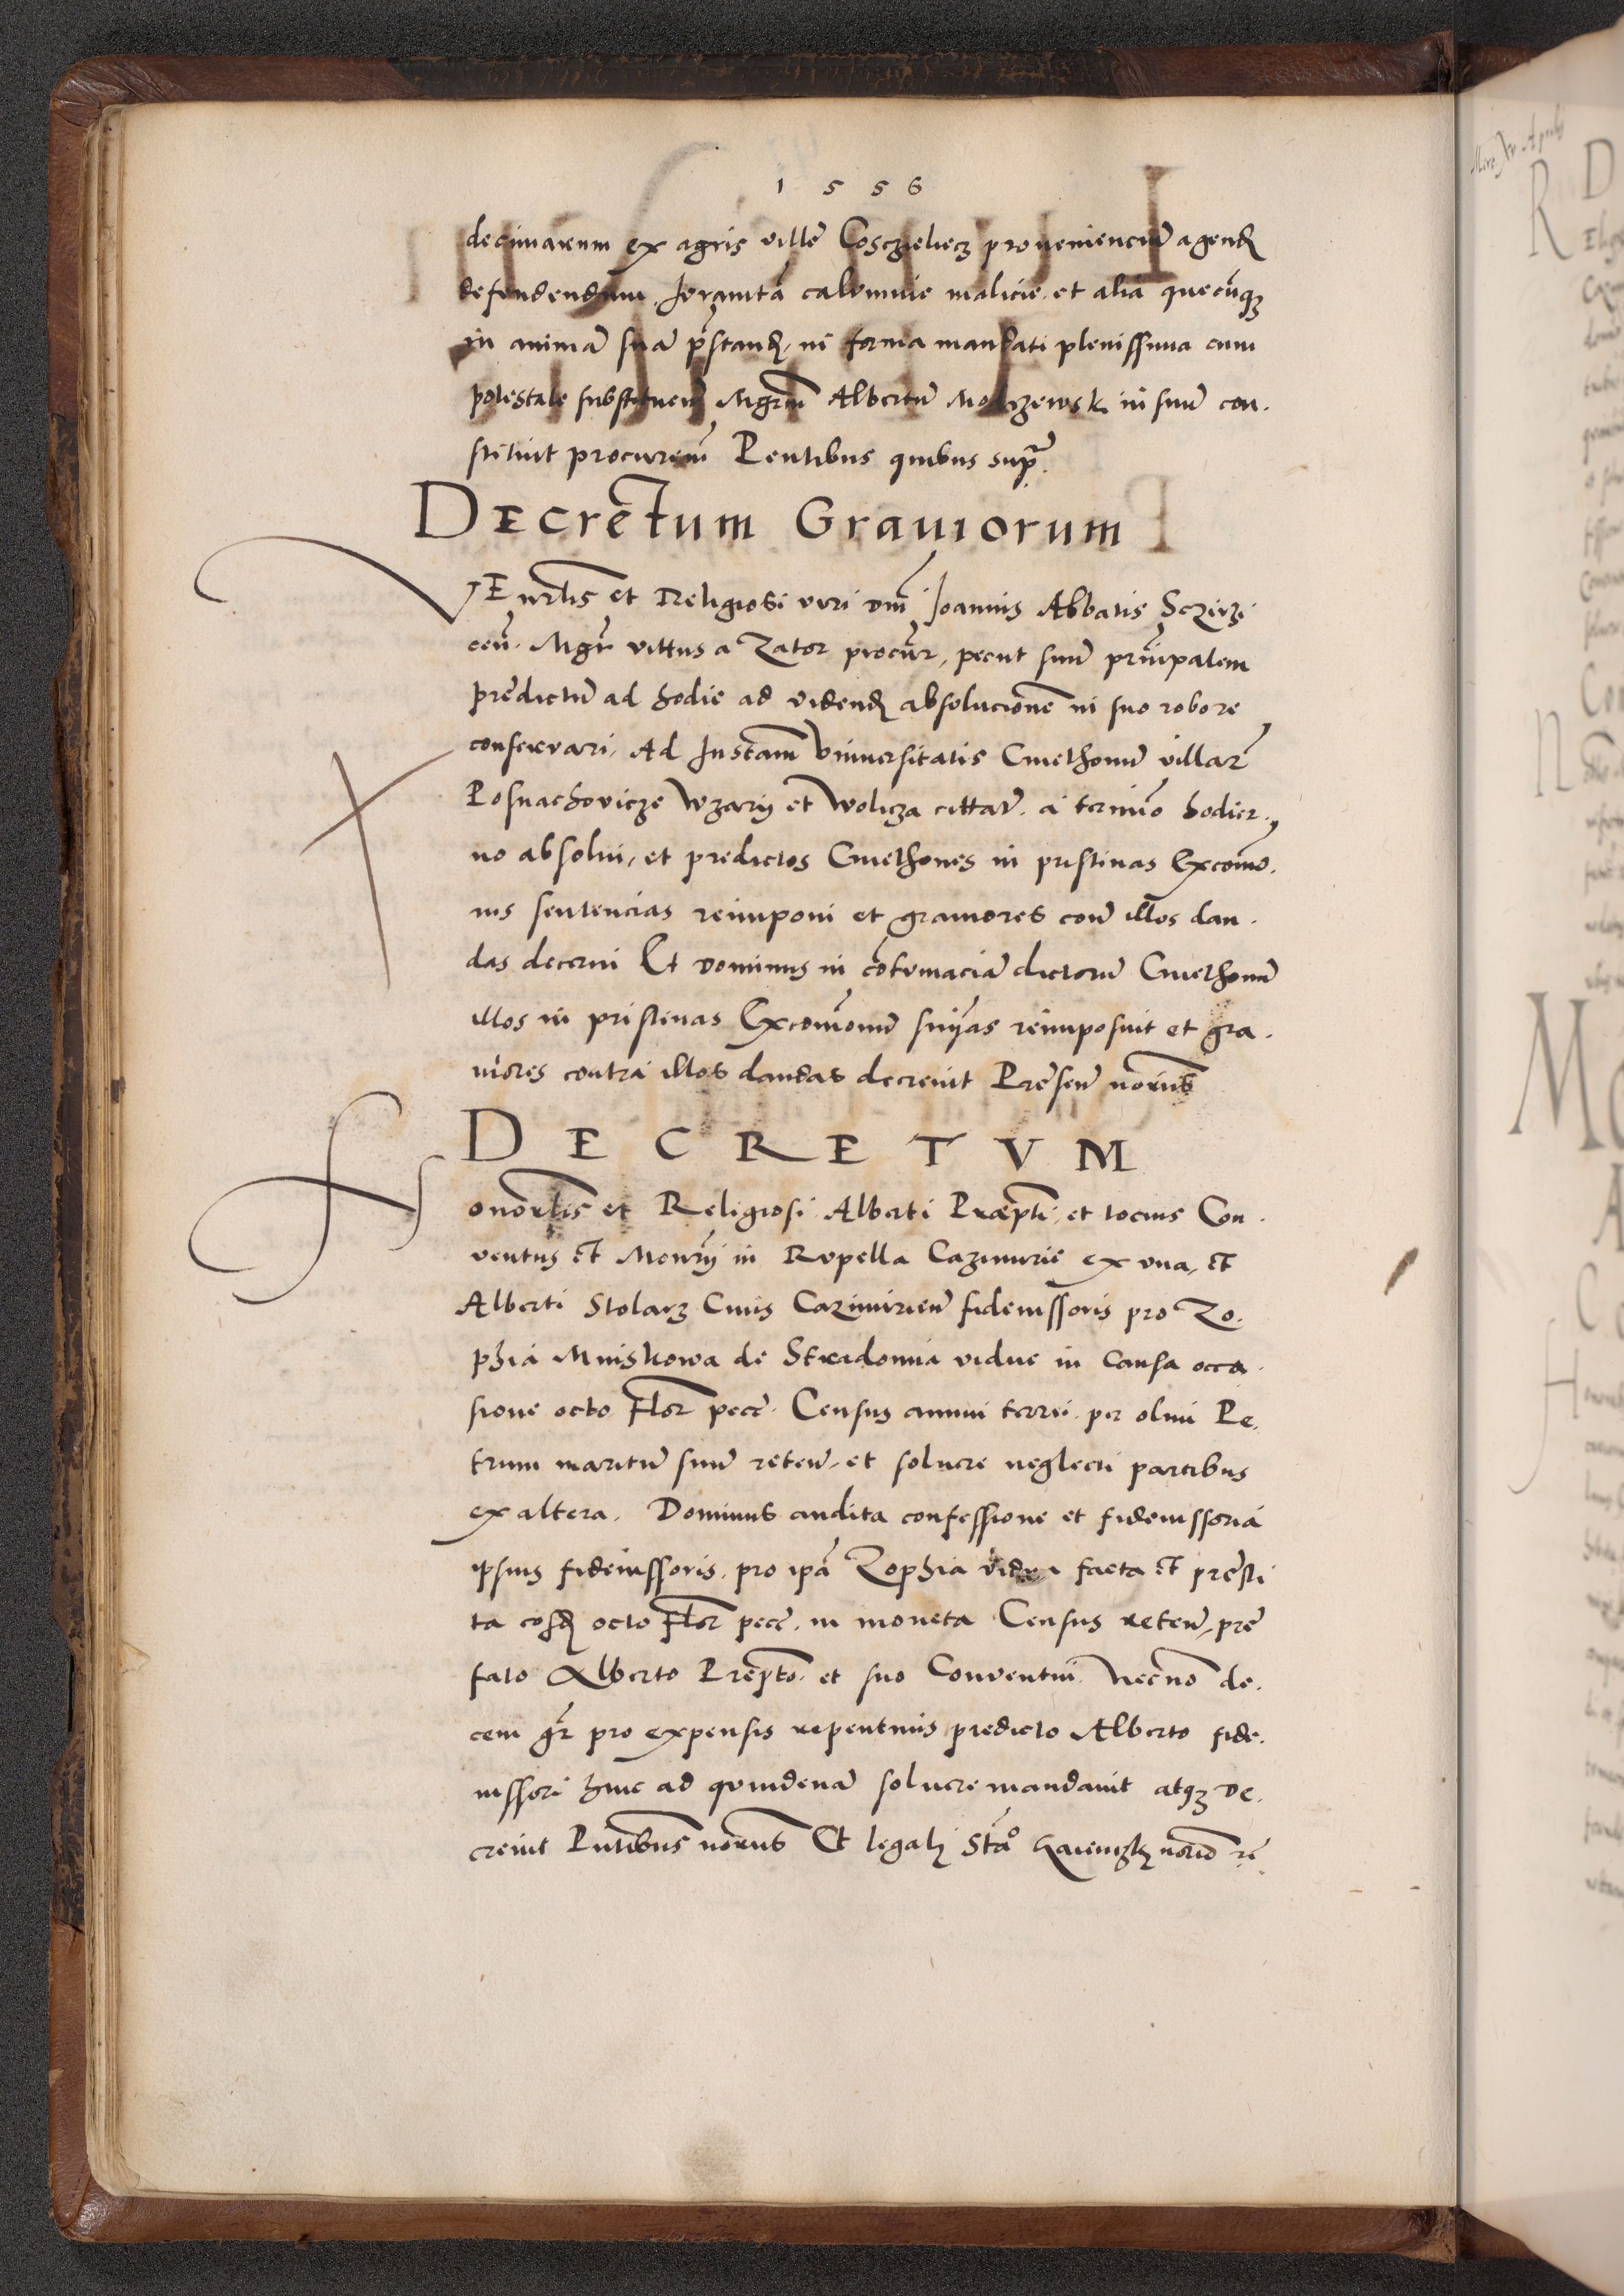 1 5 5 6
decimarum ex agris ville Cosczielecz proveniencium agend
defendendum Iuramta calumnie malicie et alia quecunq
in anima sua prestand in forma mandati plenissima cum
potestate substituen Mgrm Albertu in suum con
stituit procurem Pentibus quibus supra
Decretum Graviorum
VEnrlis et Religiosi viri dni Joannis Abbatis Sczirzi
cen Mgr vittus a Zator procur petit suum principalem
predictu ad hodie ad videnд absolucionem in suo robore
conservari Ad Instam Universitatis Cmethonum villar
Posnachovicze Wzary et Wolicza cittar a termino hodier
no absolvi et predictos Cmethones in pristinas Excomo
nis sentencias reimponi et graviores contra illos dan
das decerni Et dominus in cotumacia dictoru Cmethonu
illos in pristinas Excomonum snias reimposuit et gra
viores contra illos dandas decrevit Presen notariis
DECRETVM
Honorlis et Religiosi Alberti Prepti et tocius Con
ventus et Monrij in Rupella Cazimirie ex una et
Alberti Stolarz Civis Cazimirien fideiussoris pro Zo
phia Mniskowa de Stradomia vidue in causa occa
sione octo Flor pece Census annui terrii per olim Pe
trum maritu suum reten et solvere neglecti partibus
ex altera Dominus audita confessione et fideiussoria
ipsius fideiussoris pro ipa Zophia vidua facta et presti
ta eosd octo Flor pece in moneta Census reten pre
fato Alberto Prepto et suo Conventui Necno de
cem gr pro expensis repentinis predicto Alberto fide
iussori hinc ad quindenam solvere mandavit atq de
crevit Pntibus notariis Et legali Stao notario re